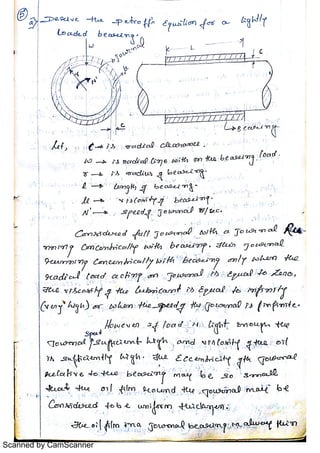 5)
a) Derive the petroff's Equation for a lightly
Loaded bearing.
W
Journal
L
c
N'
r
c
Bearing
Let, c → is radial clearance.
W → is radial load with on the bearing load.
r → is radius of bearing
l → length of bearing.
μ → viscosity of bearing.
N' → speed of Journal r/sec.
Considered full Journal with a Journal Run-
nning Concentrically with bearing. This Journal
running Concentrically with bearing only when the
radial load acting on Journal is Equal to Zero,
The viscosity of the lubricant is Equal to infinity
(very high) or when the speed of the Journal is infinite.
However if load is light enough the
Journal speed sufficient high and viscosity of the oil
is sufficiently high. The Eccentricity of the Journal
Relative to the bearing may be so small
that the oil film Round the Journal may be
Considered to be uniform thickness.
The oil film in a Journal bearing is always thin
Scanned by CamScanner